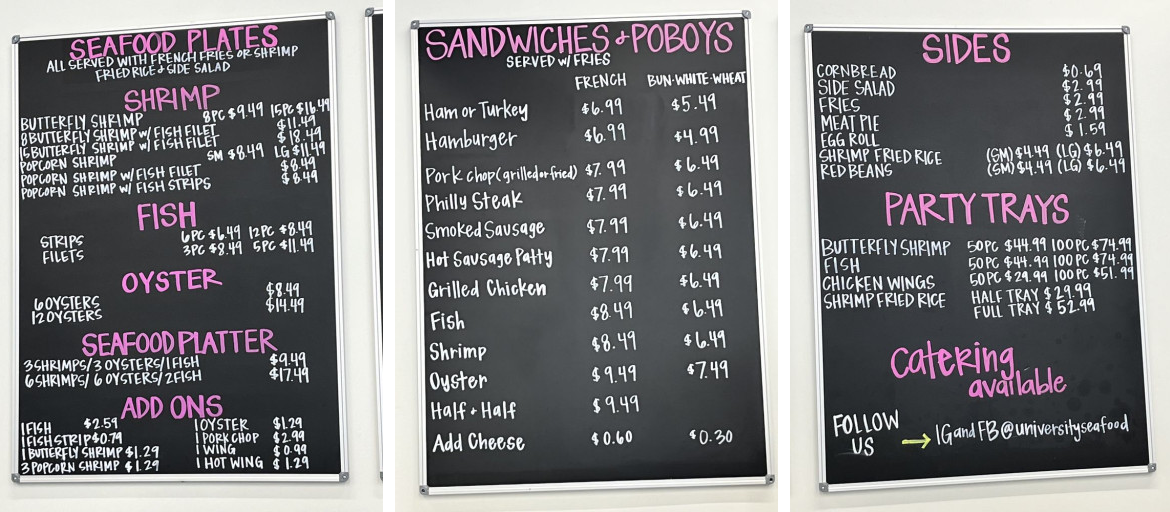 SEAFOOD PLATES
ALL SERVED WITH FRENCH FRIES OR SHRIMP
FRIED RICE & SIDE SALAD
SHRIMP
BUTTERFLY SHRIMP 8PC $9.49 15PC $16.49
8 BUTTERFLY SHRIMP W/ FISH FILET $11.49
15 BUTTERFLY SHRIMP W/ FISH FILET $18.49
POPCORN SHRIMP SM $8.49 LG $11.49
POPCORN SHRIMP W/ FISH FILET $8.49
POPCORN SHRIMP W/ FISH STRIPS $8.49
FISH
STRIPS 6PC $6.49 12PC $8.49
FILETS 3PC $8.49 5PC $11.49
OYSTER
6 OYSTERS $8.49
12 OYSTERS $14.49
SEAFOOD PLATTER
3 SHRIMPS/3 OYSTERS/1 FISH $9.49
6 SHRIMPS/ 6 OYSTERS/2 FISH $17.49
ADD ONS
1 FISH $2.59 1 OYSTER $1.29
1 FISH STRIP $0.79 1 PORK CHOP $2.99
1 BUTTERFLY SHRIMP $1.29 1 WING $0.99
3 POPCORN SHRIMP $1.29 1 HOT WING $1.29
SANDWICHES & POBOYS
SERVED W/ FRIES
FRENCH BUN·WHITE·WHEAT
Ham or Turkey $6.99 $5.49
Hamburger $6.99 $4.99
Pork chop (grilled or fried) $7.99 $6.49
Philly Steak $7.99 $6.49
Smoked Sausage $7.99 $6.49
Hot Sausage Patty $7.99 $6.49
Grilled Chicken $7.99 $6.49
Fish $8.49 $6.49
Shrimp $8.49 $6.49
Oyster $9.49 $7.49
Half & Half $9.49
Add Cheese $0.60 $0.30
SIDES
CORNBREAD $0.69
SIDE SALAD $2.99
FRIES $2.99
MEAT PIE $2.99
EGG ROLL $1.59
SHRIMP FRIED RICE (SM) $4.49 (LG) $6.49
RED BEANS (SM) $4.49 (LG) $6.49
PARTY TRAYS
BUTTERFLY SHRIMP 50PC $44.99 100PC $74.99
FISH 50PC $44.99 100PC $74.99
CHICKEN WINGS 50PC $29.99 100PC $51.99
SHRIMP FRIED RICE HALF TRAY $29.99
FULL TRAY $52.99
Catering
available
FOLLOW
US → IG and FB @universityseafood